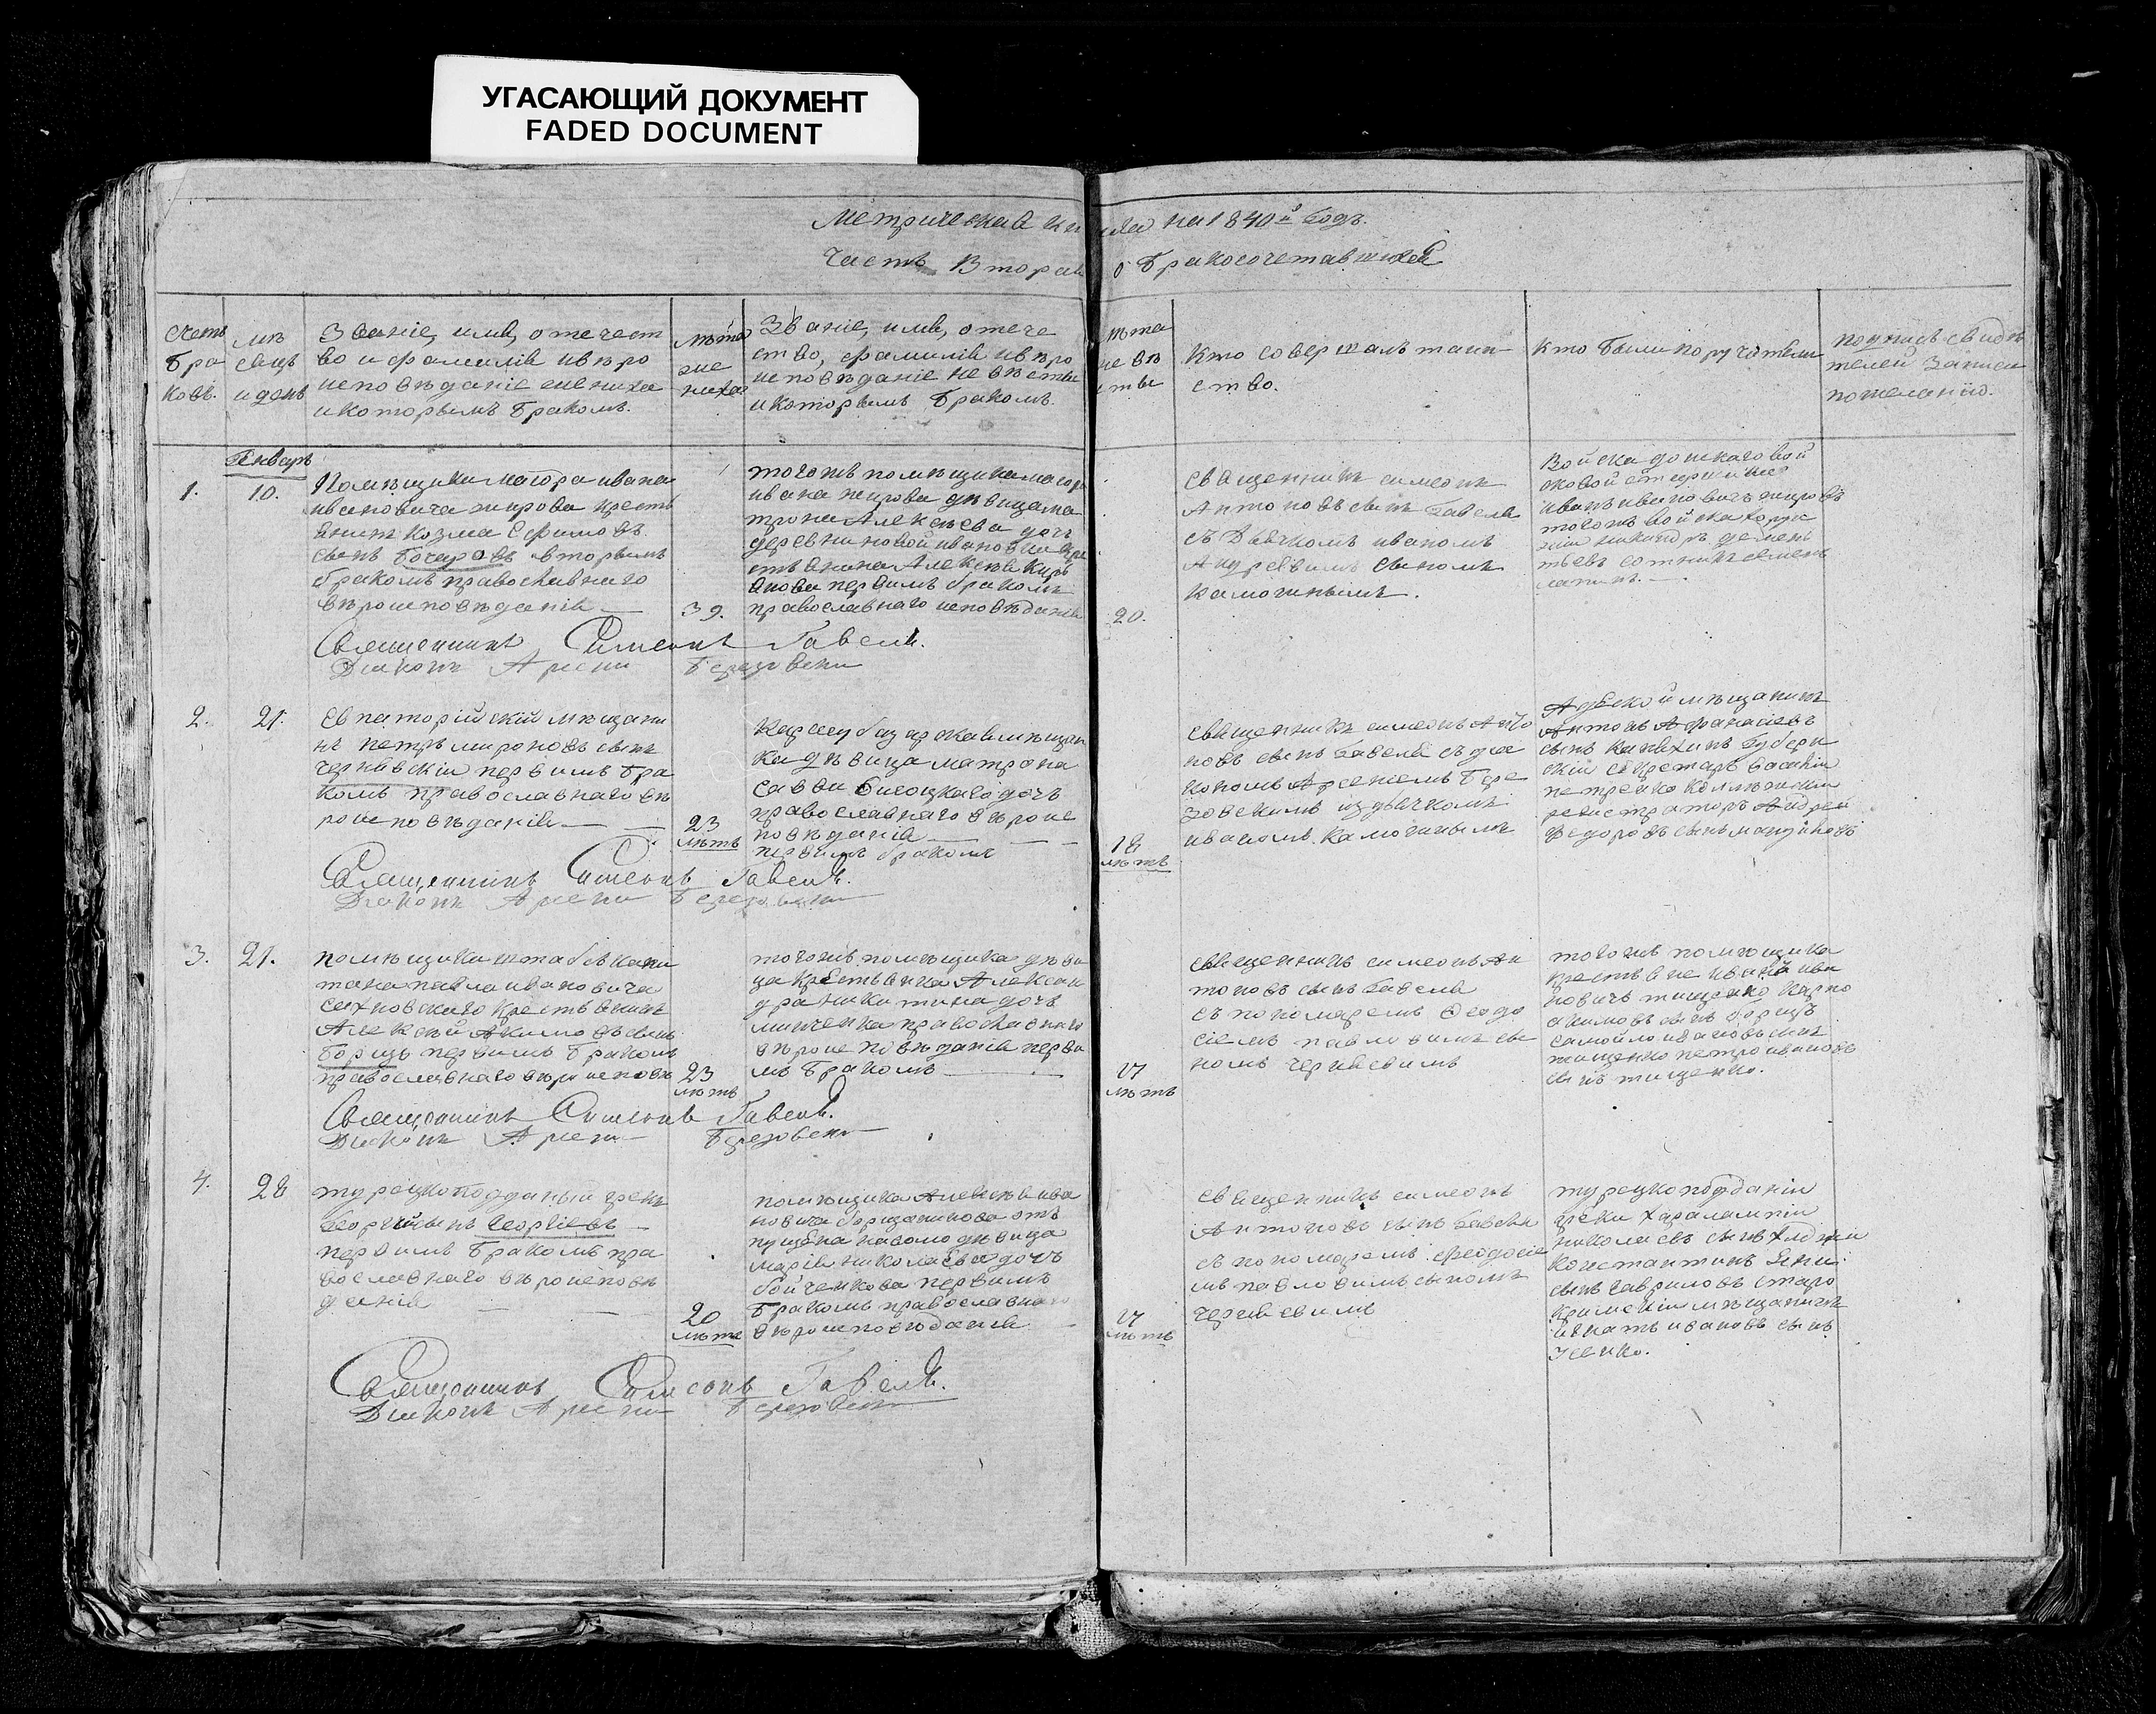 УГАСАЮЩИЙ ДОКУМЕНТ
FADED DOCUMENT
Метрическая книга на 1840й Годъ.
Часть Вторая о Бракосочетавшихся
Счетъ
Бра
ковъ.
мѣ
сяцъ
и день
Званіе, имя, отечест
во и фамилія и вѣро
исповѣданіе жениха
и которымъ бракомъ.
лѣта
же
ниха
Званіе, имя, отече
ство, фамилія и вѣро
исповѣданіе невѣсты
и которымъ бракомъ.
лѣта
невѣ
сты
Кто совершалъ таин
ство.
Кто были поручители
подпись свидѣ
телей записи
по желанію.
Январь
1.
10.
Помѣщика маіора ивана
ивановича жирова кресть
янинъ козма Ефимовъ
сынъ Бочаровъ вторымъ
бракомъ православнаго
вѣроисповѣданія
39.
тогожъ помѣщика маіора
ивана жирова дѣвица ма
трона Алексѣева дочь
деревни новой ивановки кре
стьянина Алексѣя
первымъ бракомъ
православнаго исповѣданія
20.
священникъ симеонъ
Антоновъ сынъ Гавеля
съ Дьячкомъ иваномъ
Андреевымъ сыномъ
Войска донскаго вой
сковой старшина
иванъ ивановичъ жировъ
тогожъ войска хорун
жій
сотникъ семенъ
Священникъ Симеонъ Гавель.
Діаконъ Арсени Березовски
2.
21.
Евпаторійскій мѣщани
нъ петръ мироновъ сынъ
Чернявскій первымъ бра
комъ православнаго вѣ
роисповѣданія
23
лѣтъ
Карасубазарская мѣщан
ка дѣвица матрона
савви дочь
православнаго вѣроис
повѣданія
первымъ бракомъ
18
лѣтъ
священникъ симеонъ Анто
новъ сынъ Гавеля съ діа
кономъ Арсеніемъ Бере
зовскимъ и дьячкомъ
иваномъ
мѣщанинъ
Антонъ Афанасіевъ
сынъ Губерн
скій секретарь василій
петренко коллежскій
регистраторъ Андрей
Федоровъ сынъ
Священникъ Симеонъ Гавель.
Діаконъ Арсени Березовски
3.
21.
помѣщика штабсъ капи
тана павла ивановича
крестьянинъ
Алексѣй Акимовъ сынъ
Борщъ первымъ бракомъ
православнаго вѣроисповѣ
23
лѣтъ
тогожъ помѣщика дѣви
ца крестьянка Алексан
дра никитина дочь
православнаго
вѣроисповѣданія первы
мъ бракомъ
17
лѣтъ
священникъ симеонъ Ан
тоновъ сынъ Гавеля
съ пономаремъ Феодо
сіемъ павловымъ сы
номъ
тогожъ помѣщика
крестьяне иванъ ива
новичъ тищенко Карпо
акимовъ сынъ борщъ
самойло ивановъ сынъ
тищенко петро ивановъ
сынъ тищенко.
Священникъ Симеонъ Гавель.
Діаконъ Арсени Березовски
4.
28
турецкоподданый грекъ
Георгій сынъ Георгіевъ
первымъ бракомъ пра
вославнаго вѣроисповѣ
данія
20
лѣтъ
помѣщика Алексѣя ива
новича отъ
пущена на волю дѣвица
марія николаева дочь
бойченкова первымъ
бракомъ православнаго
вѣроисповѣданія
17
лѣтъ
священникъ симеонъ
Антоновъ сынъ Гавеля
съ пономаремъ феодосіе
мъ павловымъ сыномъ
турецкоподданіи
греки харалампій
николаевъ сынъ
константинъ
сынъ гавриловъ старо
крымскій мѣщанинъ
игнатъ ивановъ сынъ
Священникъ Симеонъ Гавель.
Діаконъ Арсени Березовски